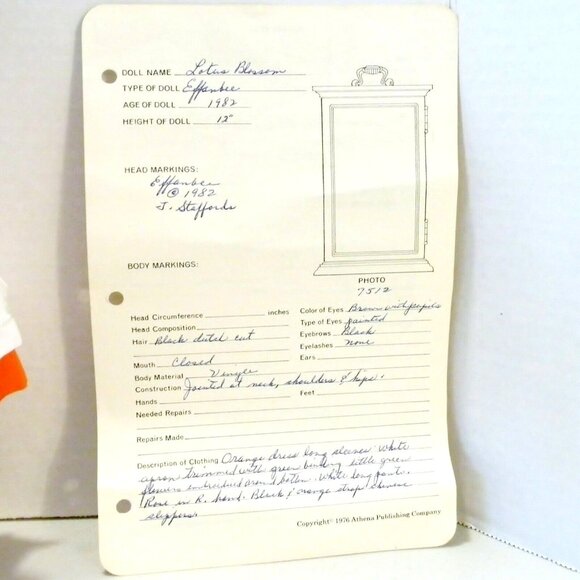 DOLL NAME Lotus Blossom
TYPE OF DOLL Effanbee
AGE OF DOLL 1982
HEIGHT OF DOLL 12"
HEAD MARKINGS:
Effanbee
© 1982
J. Staffords
BODY MARKINGS:
PHOTO
7512
Head Circumference inches
Head Composition
Hair Black dutch cut
Mouth Closed
Body Material Vinyle
Construction Jointed at neck, shoulders & hips.
Hands
Needed Repairs
Repairs Made
Color of Eyes Brown with pupils
Type of Eyes painted
Eyebrows Black
Eyelashes none
Ears
Feet
Description of Clothing Orange dress long sleeves White
apron trimmed with green binding little green
flowers embroidered around bottom. White long pants.
Rose in R. hand. Black & orange strap
slippers.
Copyright© 1976 Athena Publishing Company